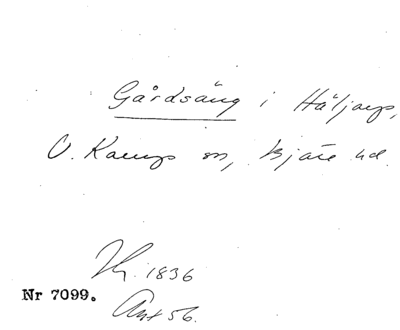 Gårdsäng i Håljarp,
V. Karups sn, Bjäre hd.
1836
Nr 7099.
Ant 56.